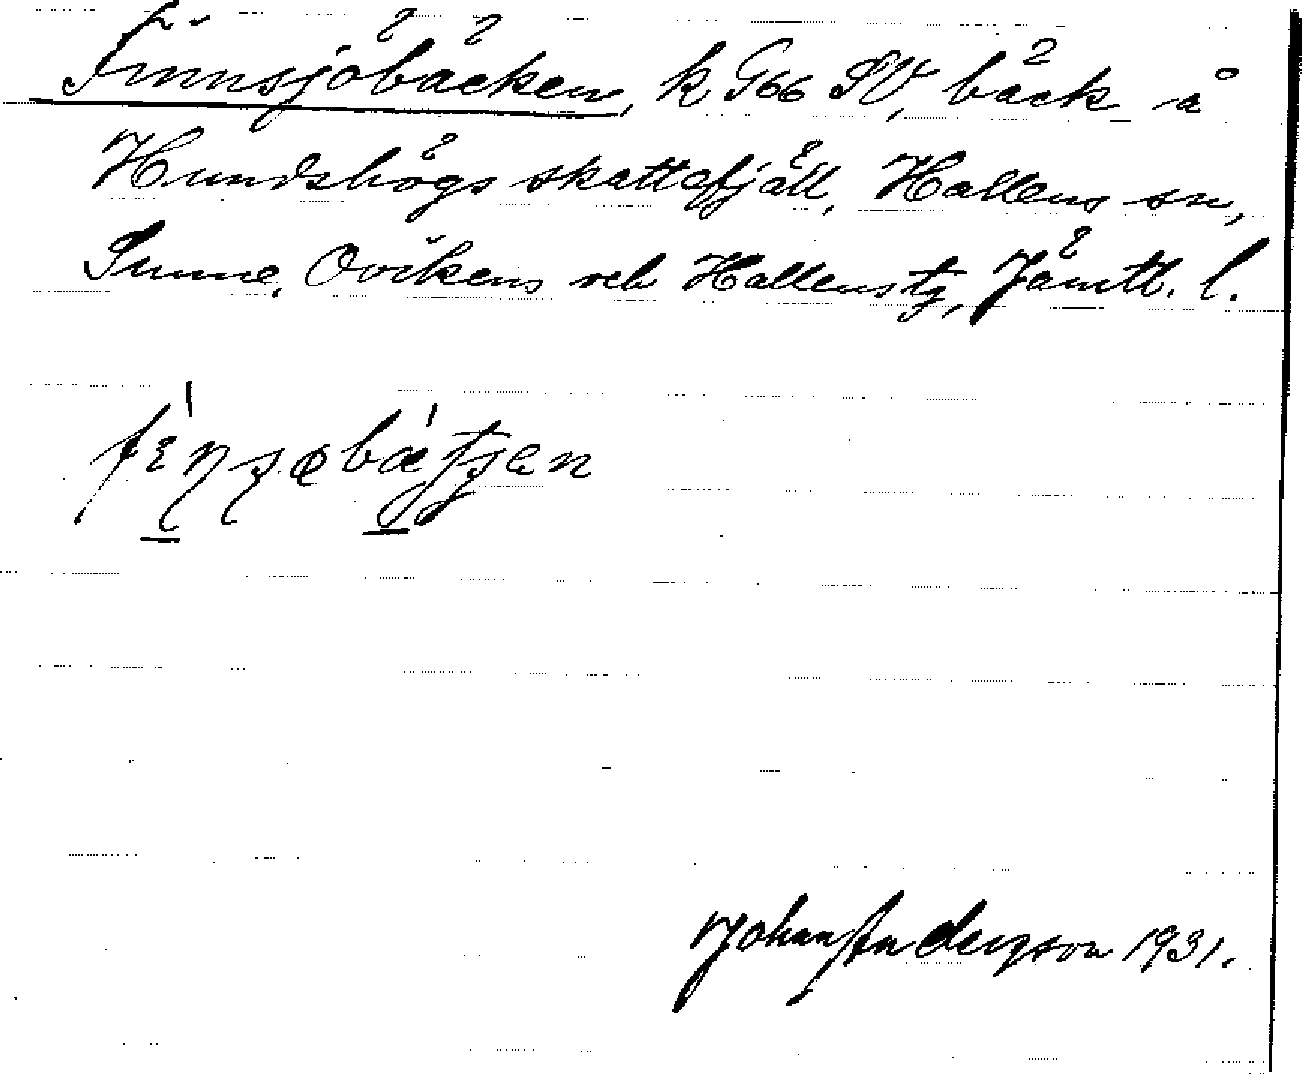 Finnsjöbäcken, k G66 SV, bäck å
Hundshögs skattefjäll, Hallens sn,
Sunne, Ovikens och Hallens tg, Jämtl. l.
Johan Anderson 1931.